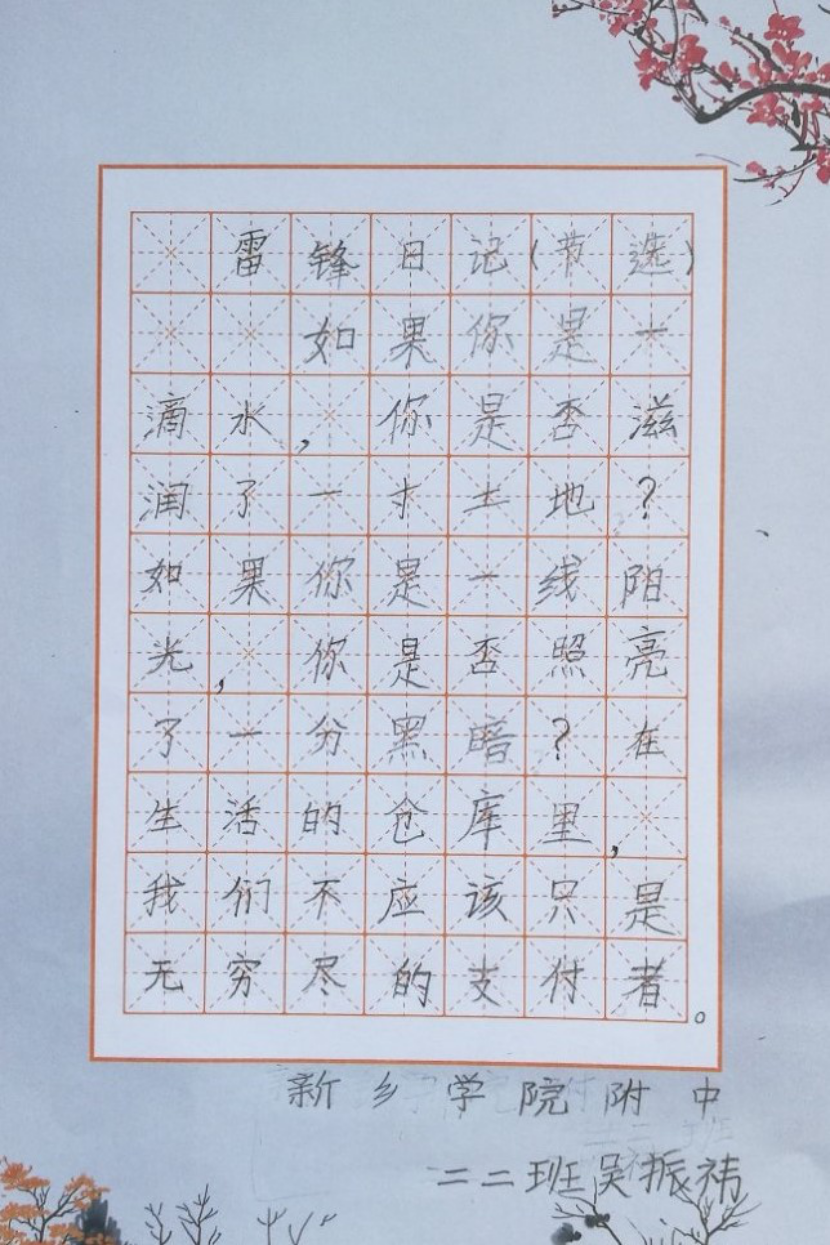 雷锋日记(节选)
如果你是一
滴水,你是否滋
润了一寸土地?
如果你是一线阳
光,你是否照亮
了一分黑暗?在
生活的仓库里,
我们不应该只是
无穷尽的支付者。
新乡学院附中
二二班吴振祎